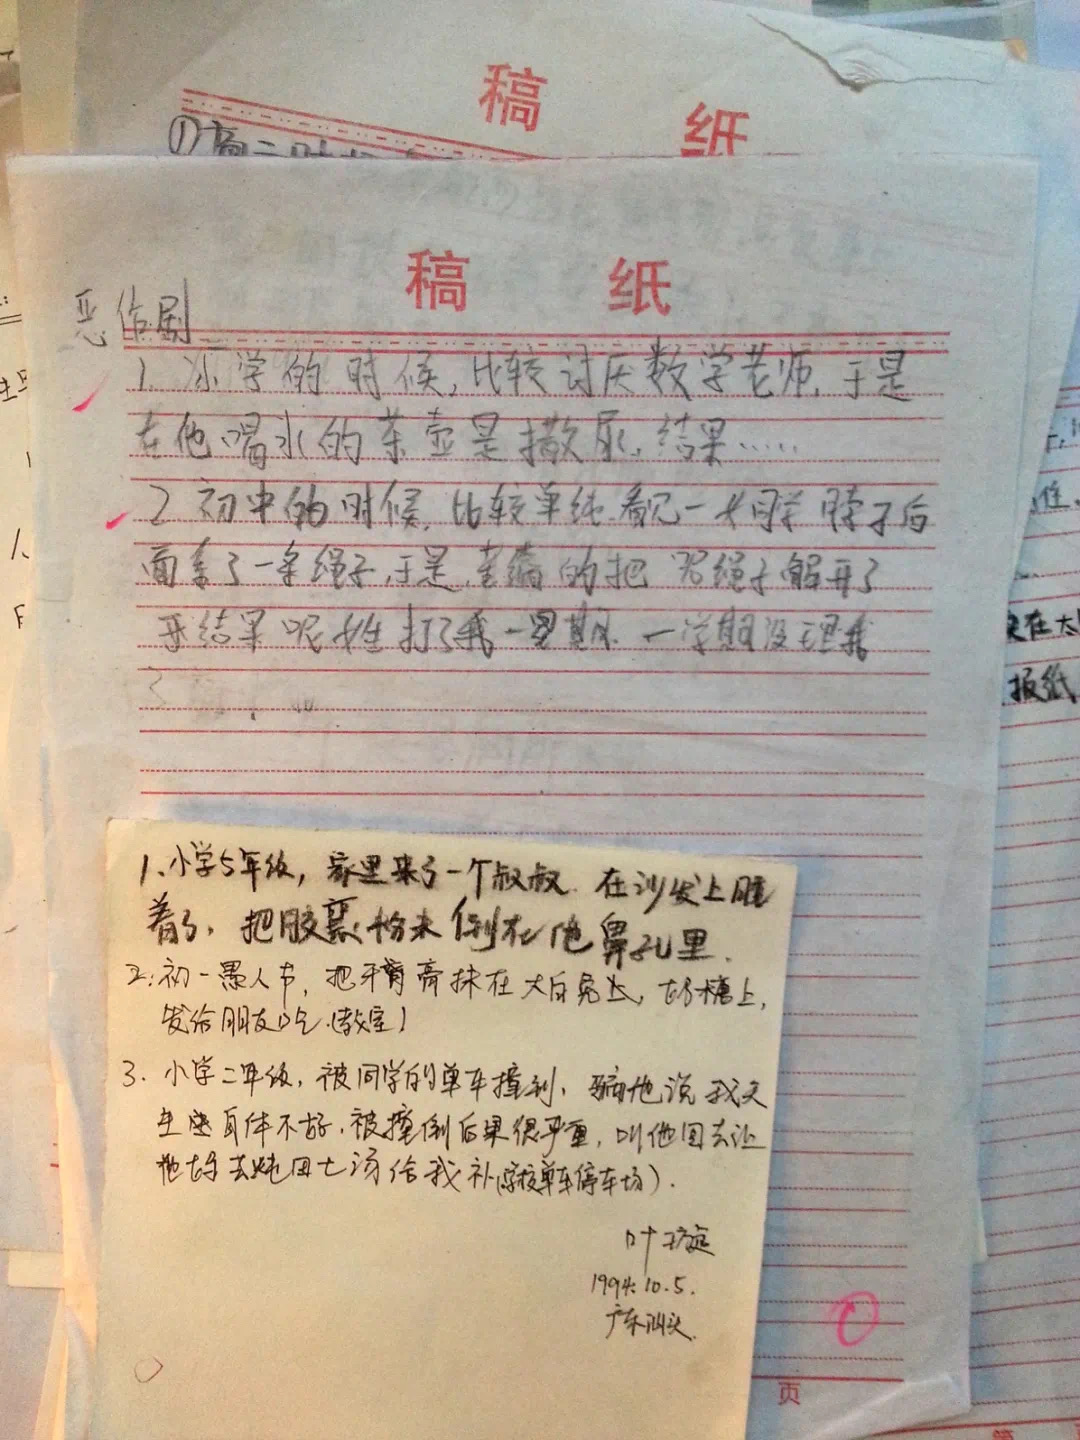 稿 纸
①高二时
稿 纸
恶作剧
1. 小学的时候,比较讨厌数学老师,于是
在他喝水的茶壶是撒尿,结果……
2 初中的时候,比较单纯.看见一女同学脖子后
面拿了一条绳子,于是,幸福的把 绳子解开了
结果呢 她打了我一星期. 一学期没理我
1、小学5年级,家里来了一个叔叔.在沙发上睡
着了,把胶囊粉末倒在他鼻孔里.
2:初一愚人节,把牙膏抹在大白兔 奶糖上,
发给朋友吃.(教室)
3. 小学二年级,被同学的单车撞到,骗他说我天
生 身体不好.被撞倒后果很严重,叫他回去让
他妈去炖 汤给我补(学校单车停车场).
叶璇
1994.10.5.
广东汕头.
页
在太
报纸